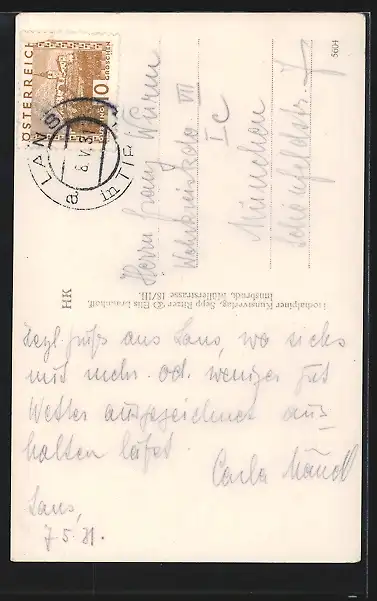 ÖSTERREICH
10
GROSCHEN
LANS
in TIR
8.V.31
a
Herrn Franz Wurm
Wehrkreiskdo VII
Ic
München
Schönfeldstr. 7
5604
Hochalpiner Kunstverlag, Sepp Ritzer
Innsbruck, Müllerstrasse 18/III.
HK
Hzl. Grüße aus Lans, wo sichs
mit mehr od. weniger gut
Wetter ausgezeichnet aus-
halten läßt.
Carla Mändl
Lans,
7.5.31.